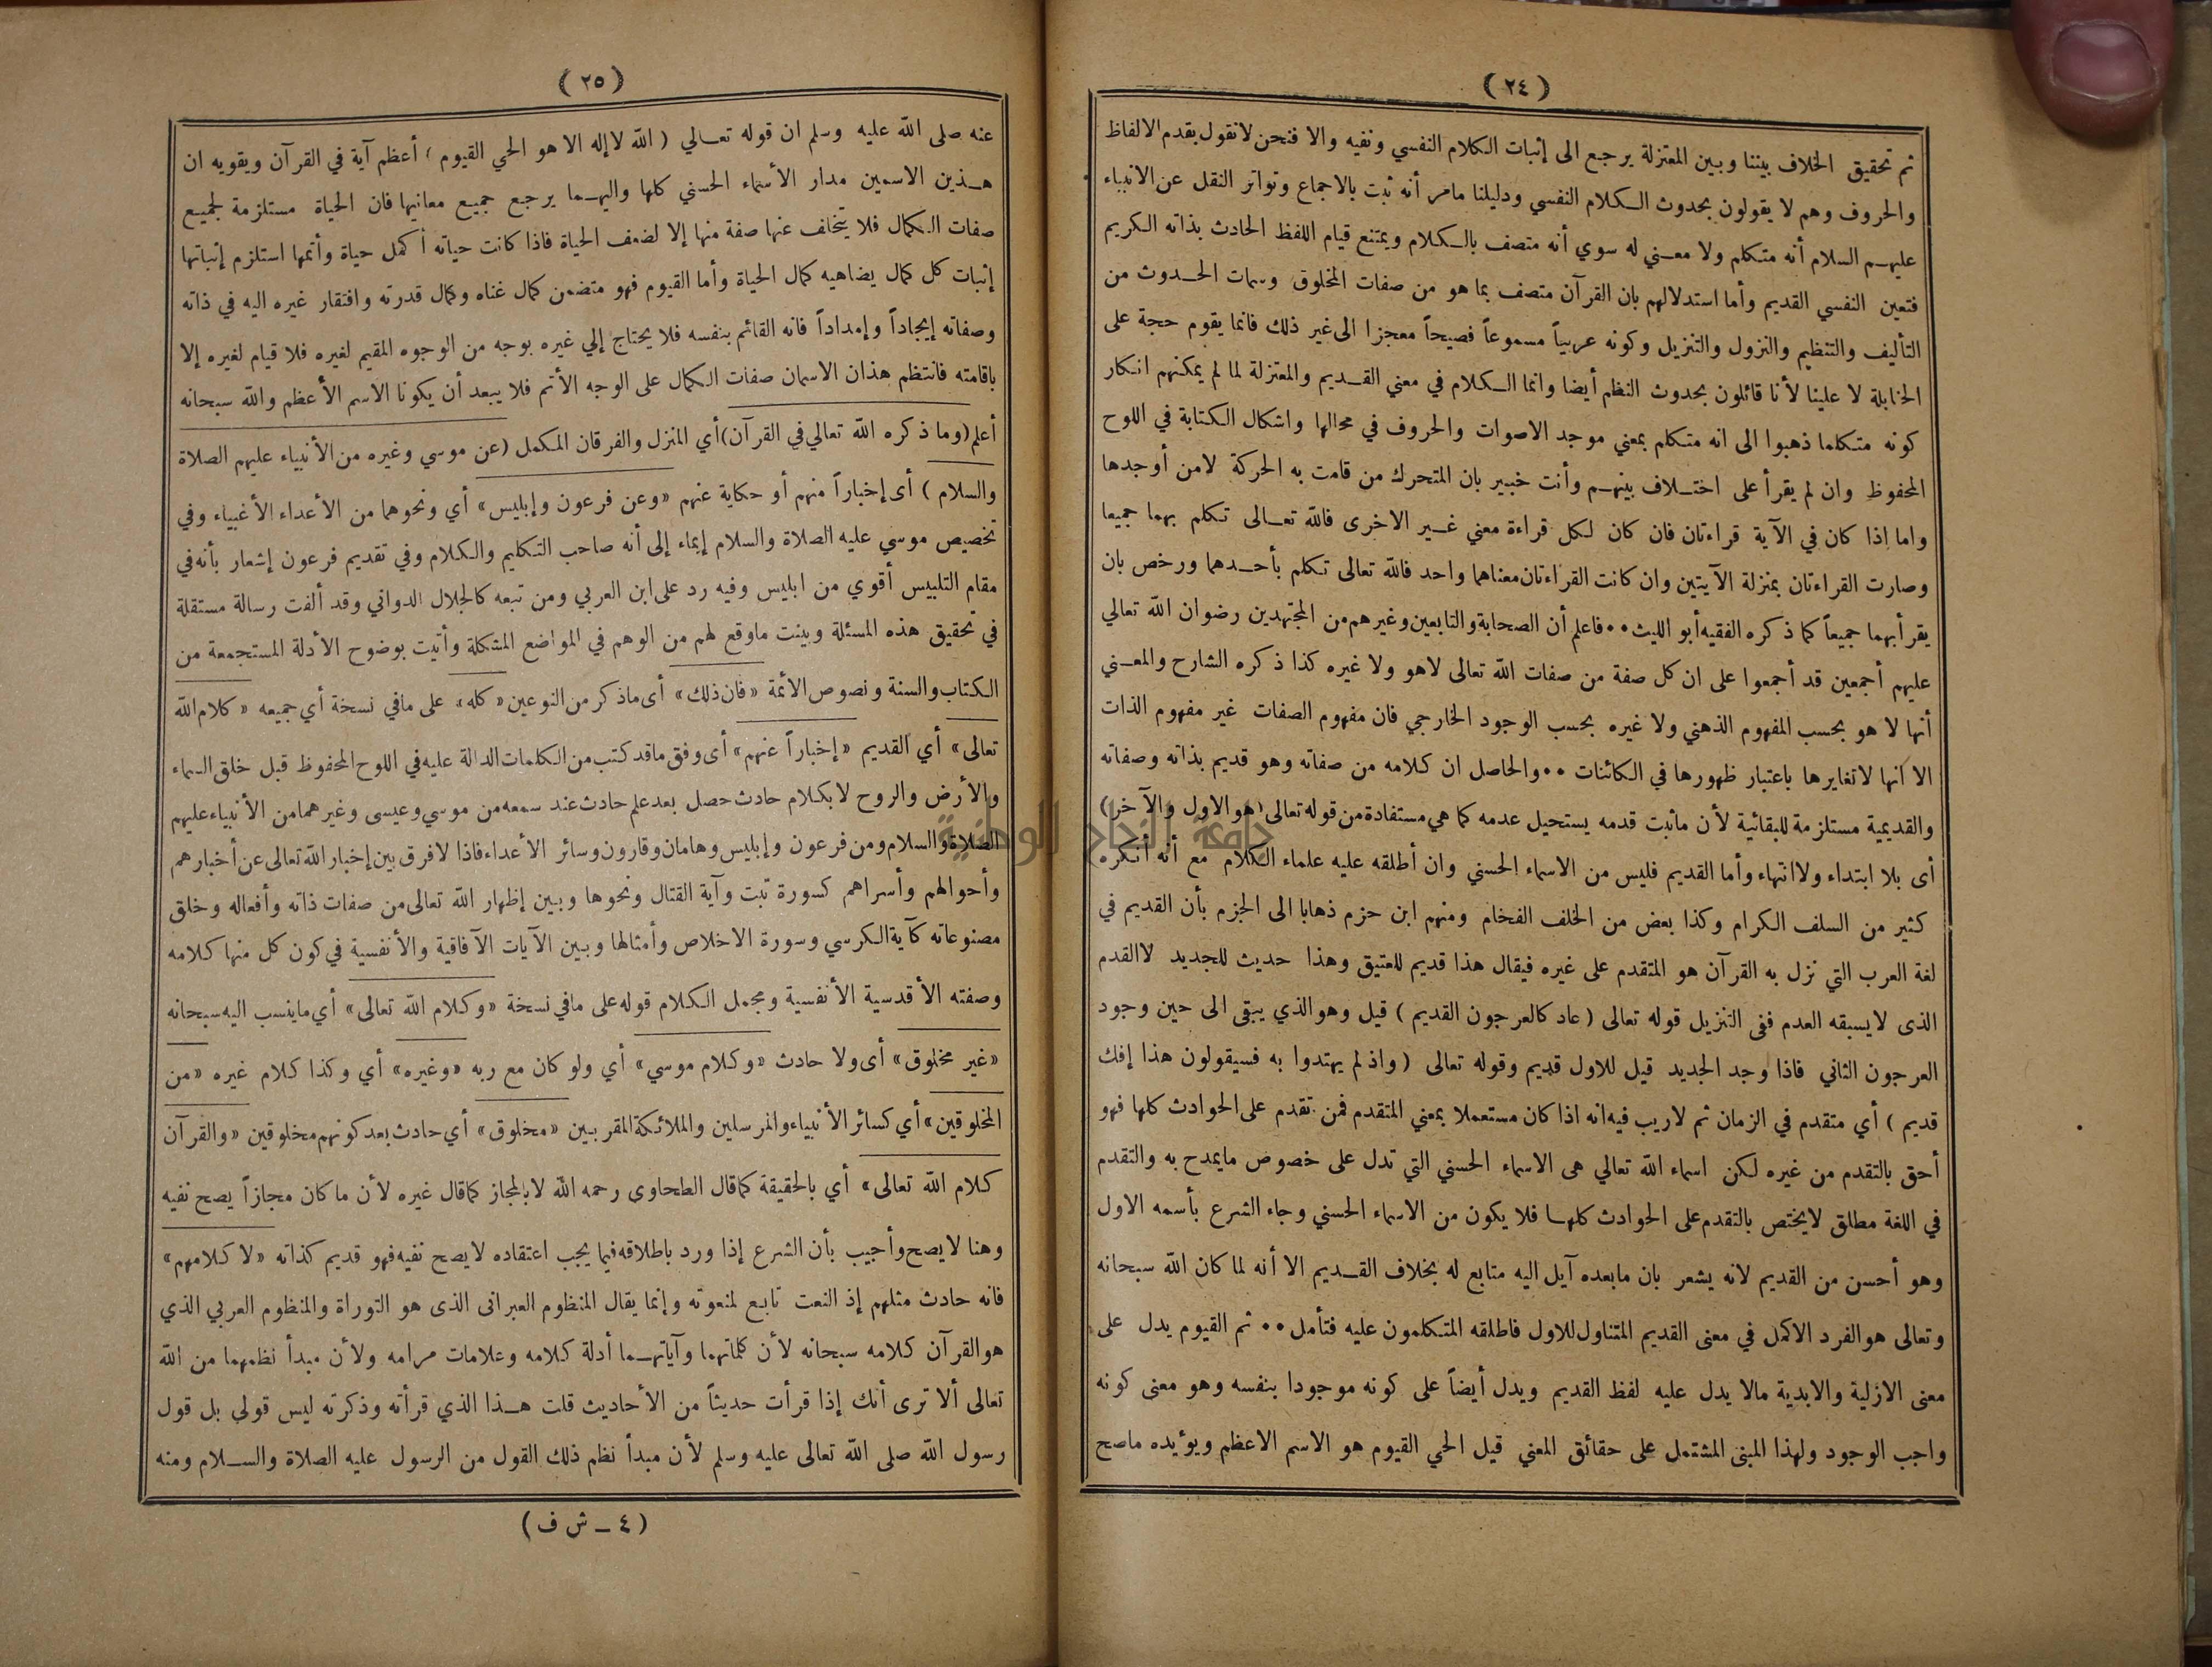 ( ٢٤ )
ثم تحقيق الخلاف بيننا وبين المعتزلة يرجع الى إثبات الكلام النفسي ونفيه والا فنحن لا نقول بقدم الالفاظ
والحروف وهم لا يقولون بحدوث الكلام النفسي ودليلنا مامر أنه ثبت بالاجماع وتواتر النقل عن الانبياء
عليهم السلام أنه متكلم ولا معني له سوي أنه متصف بالكلام ويمتنع قيام اللفظ الحادث بذاته الكريم
فتعين النفسي القديم وأما استدلالهم بان القرآن متصف بما هو من صفات المخلوق وسمات الحدوث من
التأليف والتنظيم والنزول والتنزيل وكونه عربياً مسموعاً فصيحاً معجزا الى غير ذلك فانما يقوم حجة على
الحنابلة لا علينا لأنا قائلون بحدوث النظم أيضا وانما الكلام في معني القديم والمعتزلة لما لم يمكنهم انكار
كونه متكلما ذهبوا الى انه متكلم بمعني موجد الاصوات والحروف في محالها واشكال الكتابة في اللوح
المحفوظ وان لم يقرأ على اختلاف بينهم وأنت خبير بان المتحرك من قامت به الحركة لامن أوجدها
واما إذا كان في الآية قراءتان فان كان لكل قراءة معني غير الاخرى فالله تعالى تكلم بهما جميعا
وصارت القراءتان بمنزلة الآيتين وان كانت القراءتان معناهما واحد فالله تعالى تكلم بأحدهما ورخص بان
يقرأ بهما جميعاً كما ذكره الفقيه أبو الليث ٠٠ فاعلم أن الصحابة والتابعين وغيرهم من المجتهدين رضوان الله تعالي
عليهم أجمعين قد أجمعوا على ان كل صفة من صفات الله تعالى لاهو ولا غيره كذا ذكره الشارح والمعني
أنها لا هو بحسب المفهوم الذهني ولا غيره بحسب الوجود الخارجي فان مفهوم الصفات غير مفهوم الذات
الا انها لاتغايرها باعتبار ظهورها في الكائنات ٠٠ والحاصل ان كلامه من صفاته وهو قديم بذاته وصفاته
والقديمية مستلزمة للبقائية لأن ماثبت قدمه يستحيل عدمه كما هي مستفادة من قوله تعالى (هو الاول والآخر)
أى بلا ابتداء ولاانتهاء وأما القديم فليس من الاسماء الحسني وان أطلقه عليه علماء الكلام مع أنه أنكره
كثير من السلف الكرام وكذا بعض من الخلف الفخام ومنهم ابن حزم ذهابا الى الجزم بأن القديم في
لغة العرب التي نزل به القرآن هو المتقدم على غيره فيقال هذا قديم للعتيق وهذا حديث للجديد لاالقدم
الذى لايسبقه العدم ففى التنزيل قوله تعالى ( عاد كالعرجون القديم ) قيل وهو الذي يبقى الى حين وجود
العرجون الثاني فاذا وجد الجديد قيل للاول قديم وقوله تعالى ( واذ لم يهتدوا به فسيقولون هذا إفك
قديم ) أي متقدم في الزمان ثم لاريب فيه انه اذا كان مستعملا بمعني المتقدم فمن تقدم على الحوادث كلها فهو
أحق بالتقدم من غيره لكن اسماء الله تعالي هى الاسماء الحسني التي تدل على خصوص مايمدح به والتقدم
في اللغة مطلق لايختص بالتقدم على الحوادث كلها فلا يكون من الاسماء الحسني وجاء الشرع بأسمه الاول
وهو أحسن من القديم لانه يشعر بان مابعده آيل اليه متابع له بخلاف القديم الا أنه لما كان الله سبحانه
وتعالى هو الفرد الاكمل في معنى القديم المتناول للاول فاطلقه المتكلمون عليه فتأمل ٠٠ ثم القيوم يدل على
معنى الازلية والابدية مالا يدل عليه لفظ القديم ويدل أيضاً على كونه موجودا بنفسه وهو معنى كونه
واجب الوجود ولهذا المبنى المشتمل على حقائق المعني قيل الحي القيوم هو الاسم الاعظم ويؤيده ماصح
( ٢٥ )
عنه صلى الله عليه وسلم ان قوله تعالي ( الله لاإله الا هو الحي القيوم ) أعظم آية في القرآن ويقويه ان
هذين الاسمين مدار الأسماء الحسني كلها واليهما يرجع جميع معانيها فان الحياة مستلزمة لجميع
صفات الكمال فلا يتخلف عنها صفة منها إلا لضعف الحياة فاذا كانت حياته أكمل حياة وأتمها استلزم إثباتها
إثبات كل كمال يضاهيه كمال الحياة وأما القيوم فهو متضمن كمال غناه وكمال قدرته وافتقار غيره اليه في ذاته
وصفاته إيجاداً وإمداداً فانه القائم بنفسه فلا يحتاج إلي غيره بوجه من الوجوه المقيم لغيره فلا قيام لغيره إلا
باقامته فانتظم هذان الاسمان صفات الكمال على الوجه الأتم فلا يبعد أن يكونا الاسم الأعظم والله سبحانه
أعلم (وما ذكره الله تعالي في القرآن) أي المنزل والفرقان المكمل (عن موسي وغيره من الأنبياء عليهم الصلاة
والسلام ) أى إخباراً منهم أو حكاية عنهم «وعن فرعون وإبليس» أي ونحوهما من الأعداء الأغبياء وفي
تخصيص موسي عليه الصلاة والسلام إيماء إلى أنه صاحب التكليم والكلام وفي تقديم فرعون إشعار بأنه في
مقام التلبيس أقوي من ابليس وفيه رد على ابن العربي ومن تبعه كالجلال الدواني وقد ألفت رسالة مستقلة
في تحقيق هذه المسئلة وبينت ماوقع لهم من الوهم في المواضع المشكلة وأتيت بوضوح الأدلة المستجمعة من
الكتاب والسنة ونصوص الأئمة «فان ذلك» أى ماذكر من النوعين «كله» على مافي نسخة أي جميعه «كلام الله
تعالى» أي القديم «إخباراً عنهم» أى وفق ماقد كتب من الكلمات الدالة عليه في اللوح المحفوظ قبل خلق السماء
والأرض والروح لابكلام حادث حصل بعد علم حادث عند سمعه من موسي وعيسى وغيرهما من الأنبياء عليهم
الصلاة والسلام ومن فرعون وإبليس وهامان وقارون وسائر الأعداء فاذا لافرق بين إخبار الله تعالى عن أخبارهم
وأحوالهم وأسراهم كسورة تبت وآية القتال ونحوها وبين إظهار الله تعالى من صفات ذاته وأفعاله وخلق
مصنوعاته كآية الكرسي وسورة الاخلاص وأمثالها وبين الآيات الآفاقية والأنفسية في كون كل منها كلامه
وصفته الأقدسية الأنفسية ومجمل الكلام قوله على مافي نسخة «وكلام الله تعالى» أي ماينسب اليه سبحانه
«غير مخلوق» أى ولا حادث «وكلام موسي» أي ولو كان مع ربه «وغيره» أي وكذا كلام غيره «من
المخلوقين» أي كسائر الأنبياء والمرسلين والملائكة المقربين «مخلوق» أي حادث بعد كونهم مخلوقين «والقرآن
كلام الله تعالى» أي بالحقيقة كما قال الطحاوى رحمه الله لا بالمجاز كما قال غيره لأن ما كان مجازاً يصح نفيه
وهنا لايصح وأجيب بأن الشرع إذا ورد باطلاقه فيما يجب اعتقاده لايصح نفيه فهو قديم كذاته «لا كلامهم»
فانه حادث مثلهم إذ النعت تابع لمنعوته وإنما يقال المنظوم العبرانى الذى هو التوراة والمنظوم العربي الذي
هو القرآن كلامه سبحانه لأن كلماتهما وآياتهما أدلة كلامه وعلامات مرامه ولأن مبدأ نظمهما من الله
تعالى ألا ترى أنك إذا قرأت حديثاً من الأحاديث قلت هذا الذي قرأته وذكرته ليس قولي بل قول
رسول الله صلى الله تعالى عليه وسلم لأن مبدأ نظم ذلك القول من الرسول عليه الصلاة والسلام ومنه
( ٤ ــ ش ف )
جامعة النجاح الوطنية